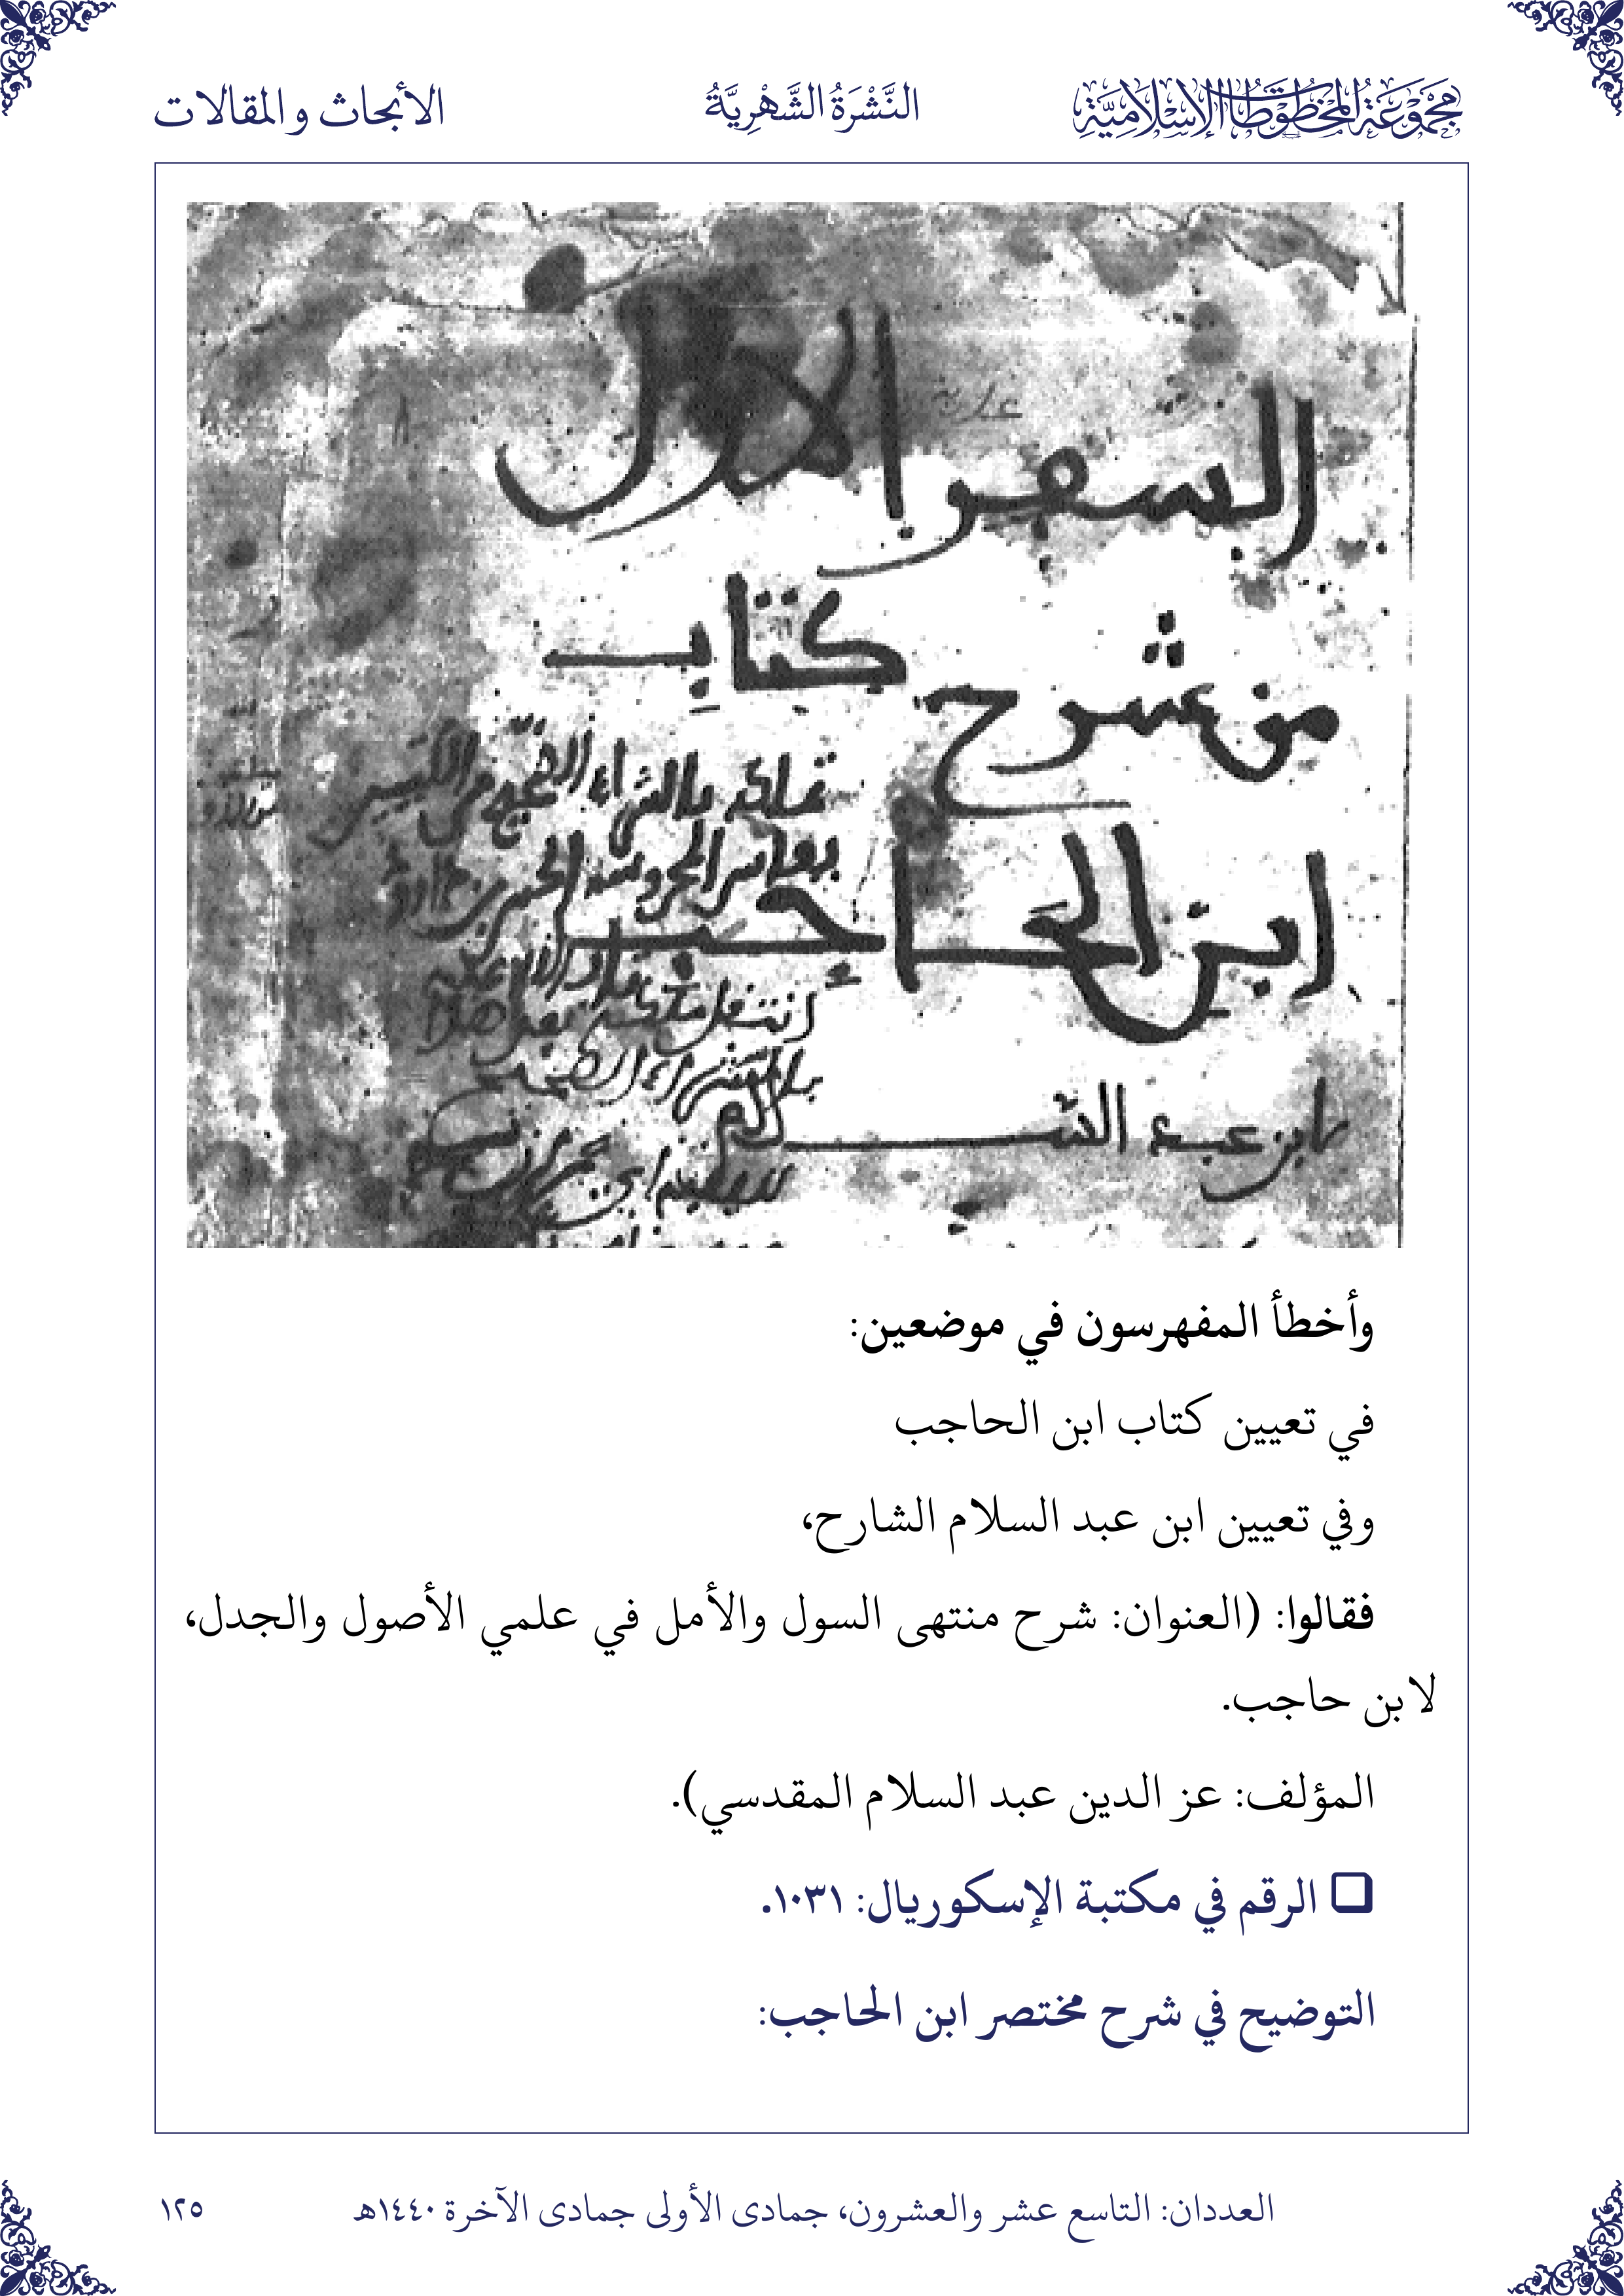 مَجْمُوعَةُ المَخْطُوطَاتِ الإِسْلَامِيَّةِ
النَّشْرَةُ الشَّهْرِيَّةُ
الأبحاث والمقالات
السفر الاول
من شرح كتاب
ابن الحاجب
لابن عبد السلام
تملكه بالشراء الصحيح من
بفاس المحروسة الحسن بن
انتقل
بالشراء الصحيح
وأخطأ المفهرسون في موضعين:
في تعيين كتاب ابن الحاجب
وفي تعيين ابن عبد السلام الشارح،
فقالوا: (العنوان: شرح منتهى السول والأمل في علمي الأصول والجدل،
لابن حاجب.
المؤلف: عز الدين عبد السلام المقدسي).
❑ الرقم في مكتبة الإسكوريال: ١٠٣١.
التوضيح في شرح مختصر ابن الحاجب:
العددان: التاسع عشر والعشرون، جمادى الأولى جمادى الآخرة ١٤٤٠هـ
١٢٥